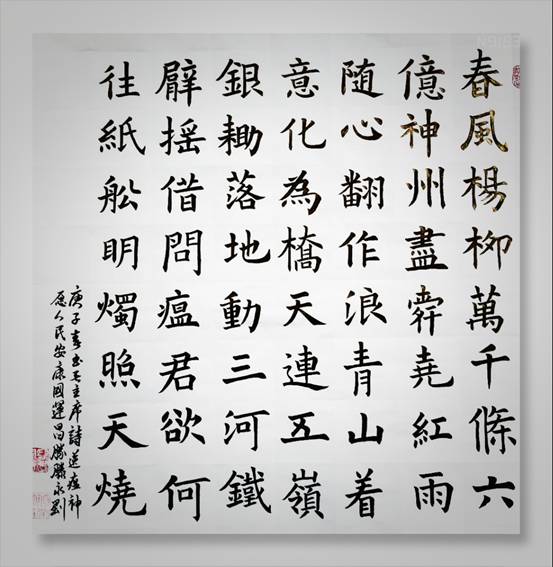 春風楊柳萬千條六
億神州盡舜堯紅雨
随心翻作浪青山着
意化為橋天連五嶺
銀耡落地動三河鐵
臂摇借問瘟君欲何
往紙舩明燭照天燒
庚子春书毛主席詩送瘟神
愿人民安康國運昌